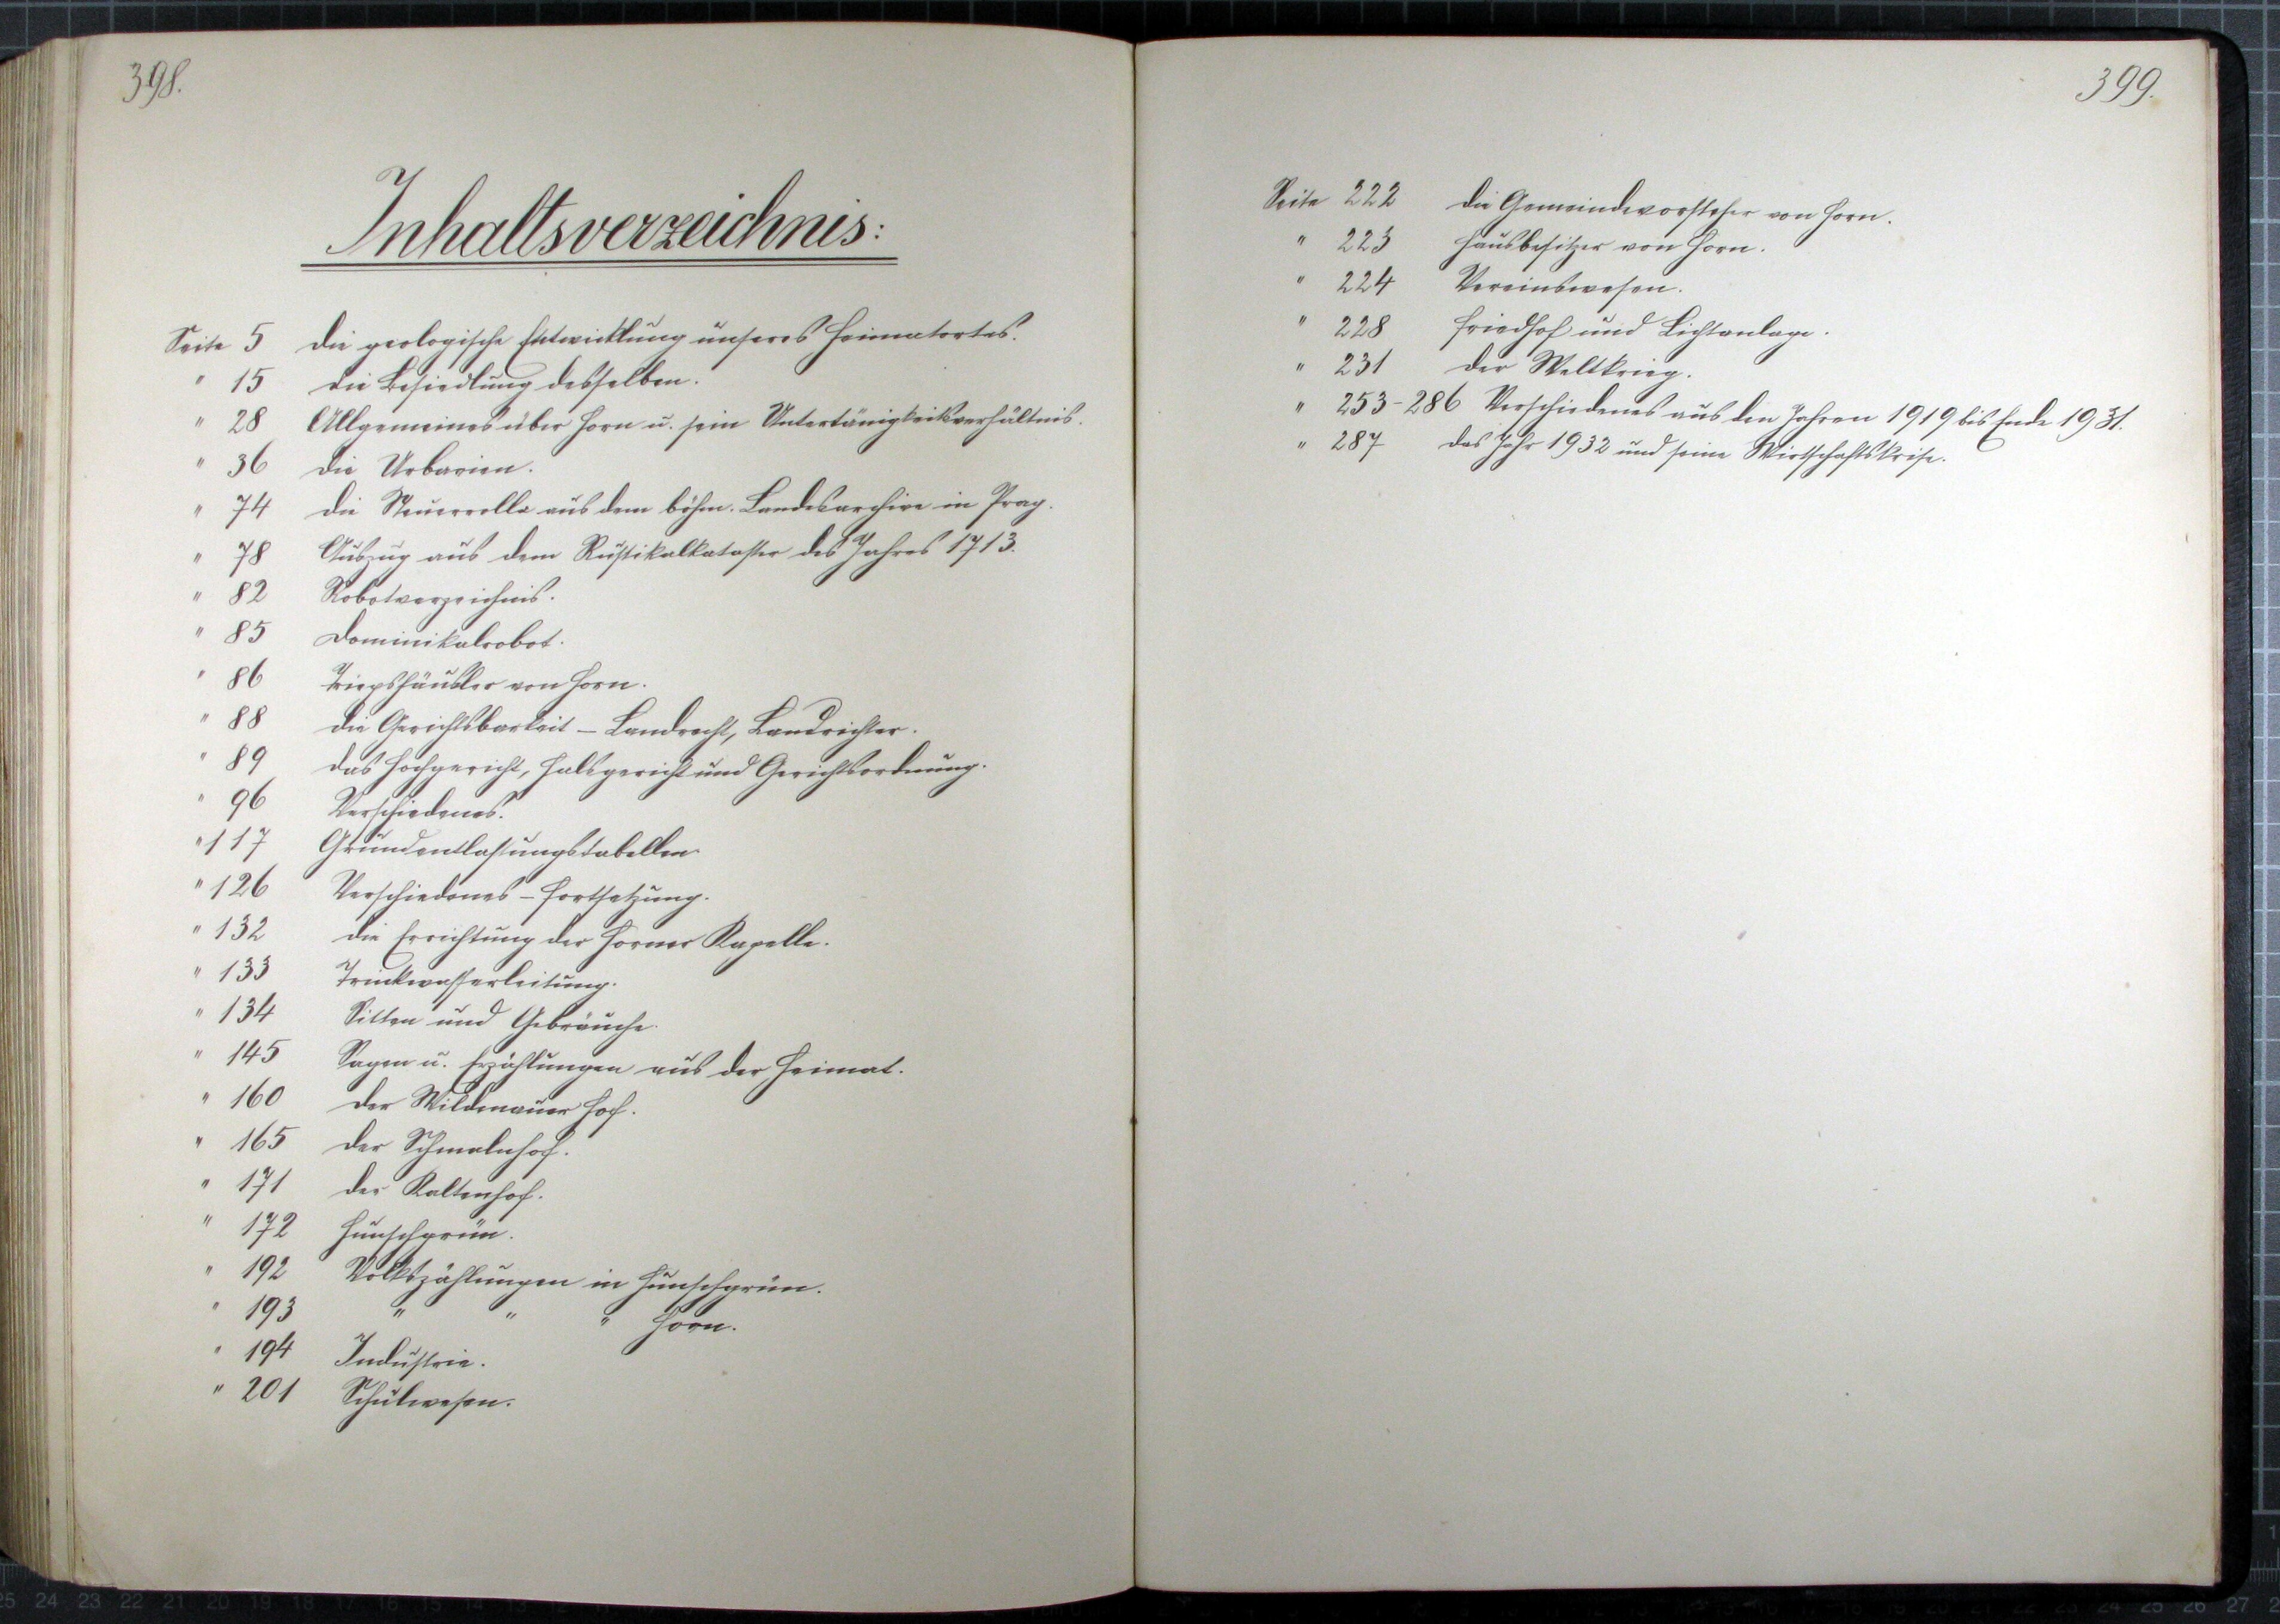 398.
Inhaltsverzeichnis:
Seite 5 Die geologische Entwicklung unseres Heimatortes.
" 15 Die Besiedlung desselben.
" 28 Allgemeines über Horn u. sein Untertänigkeitsverhältnis.
" 36 Die Urbarien.
" 74 Die Steuerrolle aus dem böhm. Landesarchive in Prag.
" 78 Auszug aus dem Rustikalkataster des Jahres 1713.
" 82 Robotverzeichnis.
" 85 Dominikalrobot.
" 86 von Horn.
" 88 Die Gerichtsbarkeit – Landrecht, Landrichter.
" 89 Das Hochgericht, Halsgericht und Gerichtsordnung.
" 96 Verschiedenes.
" 117 Grundentlastungstabellen.
" 126 Verschiedenes – Fortsetzung.
" 132 Die Errichtung der Horner Kapelle.
" 133 Trinkwasserleitung.
" 134 Sitten und Gebräuche.
" 145 Sagen u. Erzählungen aus der Heimat.
" 160 Der Wildenauer Hof.
" 165 Der Schmalnhof.
" 171 Der Kaltenhof.
" 172 Hunschgrün.
" 192 Volkszählungen in Hunschgrün.
" 193 " " " Horn.
" 194 Industrie.
" 201 Schulwesen.
399.
Seite 222 Die Gemeindevorsteher von Horn.
" 223 Hausbesitzer von Horn.
" 224 Vereinswesen.
" 228 Friedhof und Lichtanlage.
" 231 Der Weltkrieg.
" 253-286 Verschiedenes aus den Jahren 1919 bis Ende 1931.
" 287 Das Jahr 1932 und seine Wirtschaftskrise.